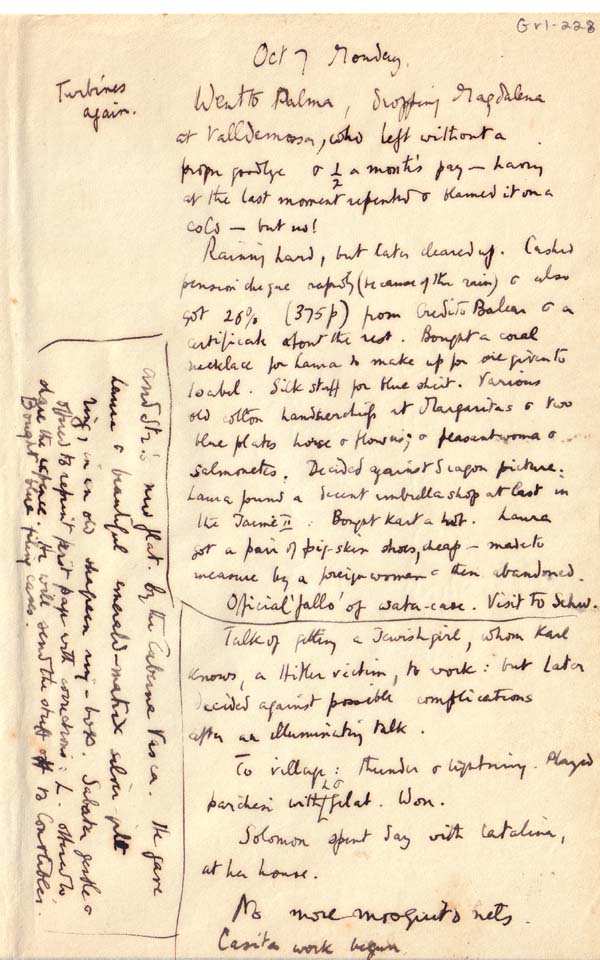 Gv1-228
Oct 7 Monday.
Turbines
again.
Went to Palma, dropping Magdalena
at Valldemossa, who left without a
proper goodbye & ½ a month's pay – having
at the last moment repented & blamed it on a
cold – but no!
Raining hard, but later cleared up. Cashed
pension cheque rapidly (because of the rain) & also
got 20% (375p) from Credito Balear & a
certificate about the rest. Bought a coral
necklace for Laura to make up for one given to
Isabel. Silk stuff for blue shirt. Various
old cotton handkerchiefs at Margaritas & two
blue plates horse & flowers; & peasant woman &
salmonetes. Decided against dragon picture:
Laura found a decent umbrella shop at last in
the Jaime II: Bought Karl a hat. Laura
got a pair of pig-skin shoes, cheap – made to
measure by a foreign woman & then abandoned.
Official 'fallo' of water-case. Visit to Schw.
and Str.'s new flat. by the Taberna Vasca. He gave
Laura a beautiful emerald-matrix silver gilt
ring, in an old ring-box. Sabater gentle &
offered to reprint first page with corrections: L. offered to
share the expense. He will send the stuff off to Constables.
Bought blue filing cases.
Talk of getting a Jewish girl, whom Karl
knows, a Hitler victim, to work: but later
decided against possible complications
after an illuminating talk.
To village: thunder & lightning. Played
parchesi with Gelat. Won.
Solomon spent day with Catalina,
at her house.
No more mosquito nets.
Casita work begun.